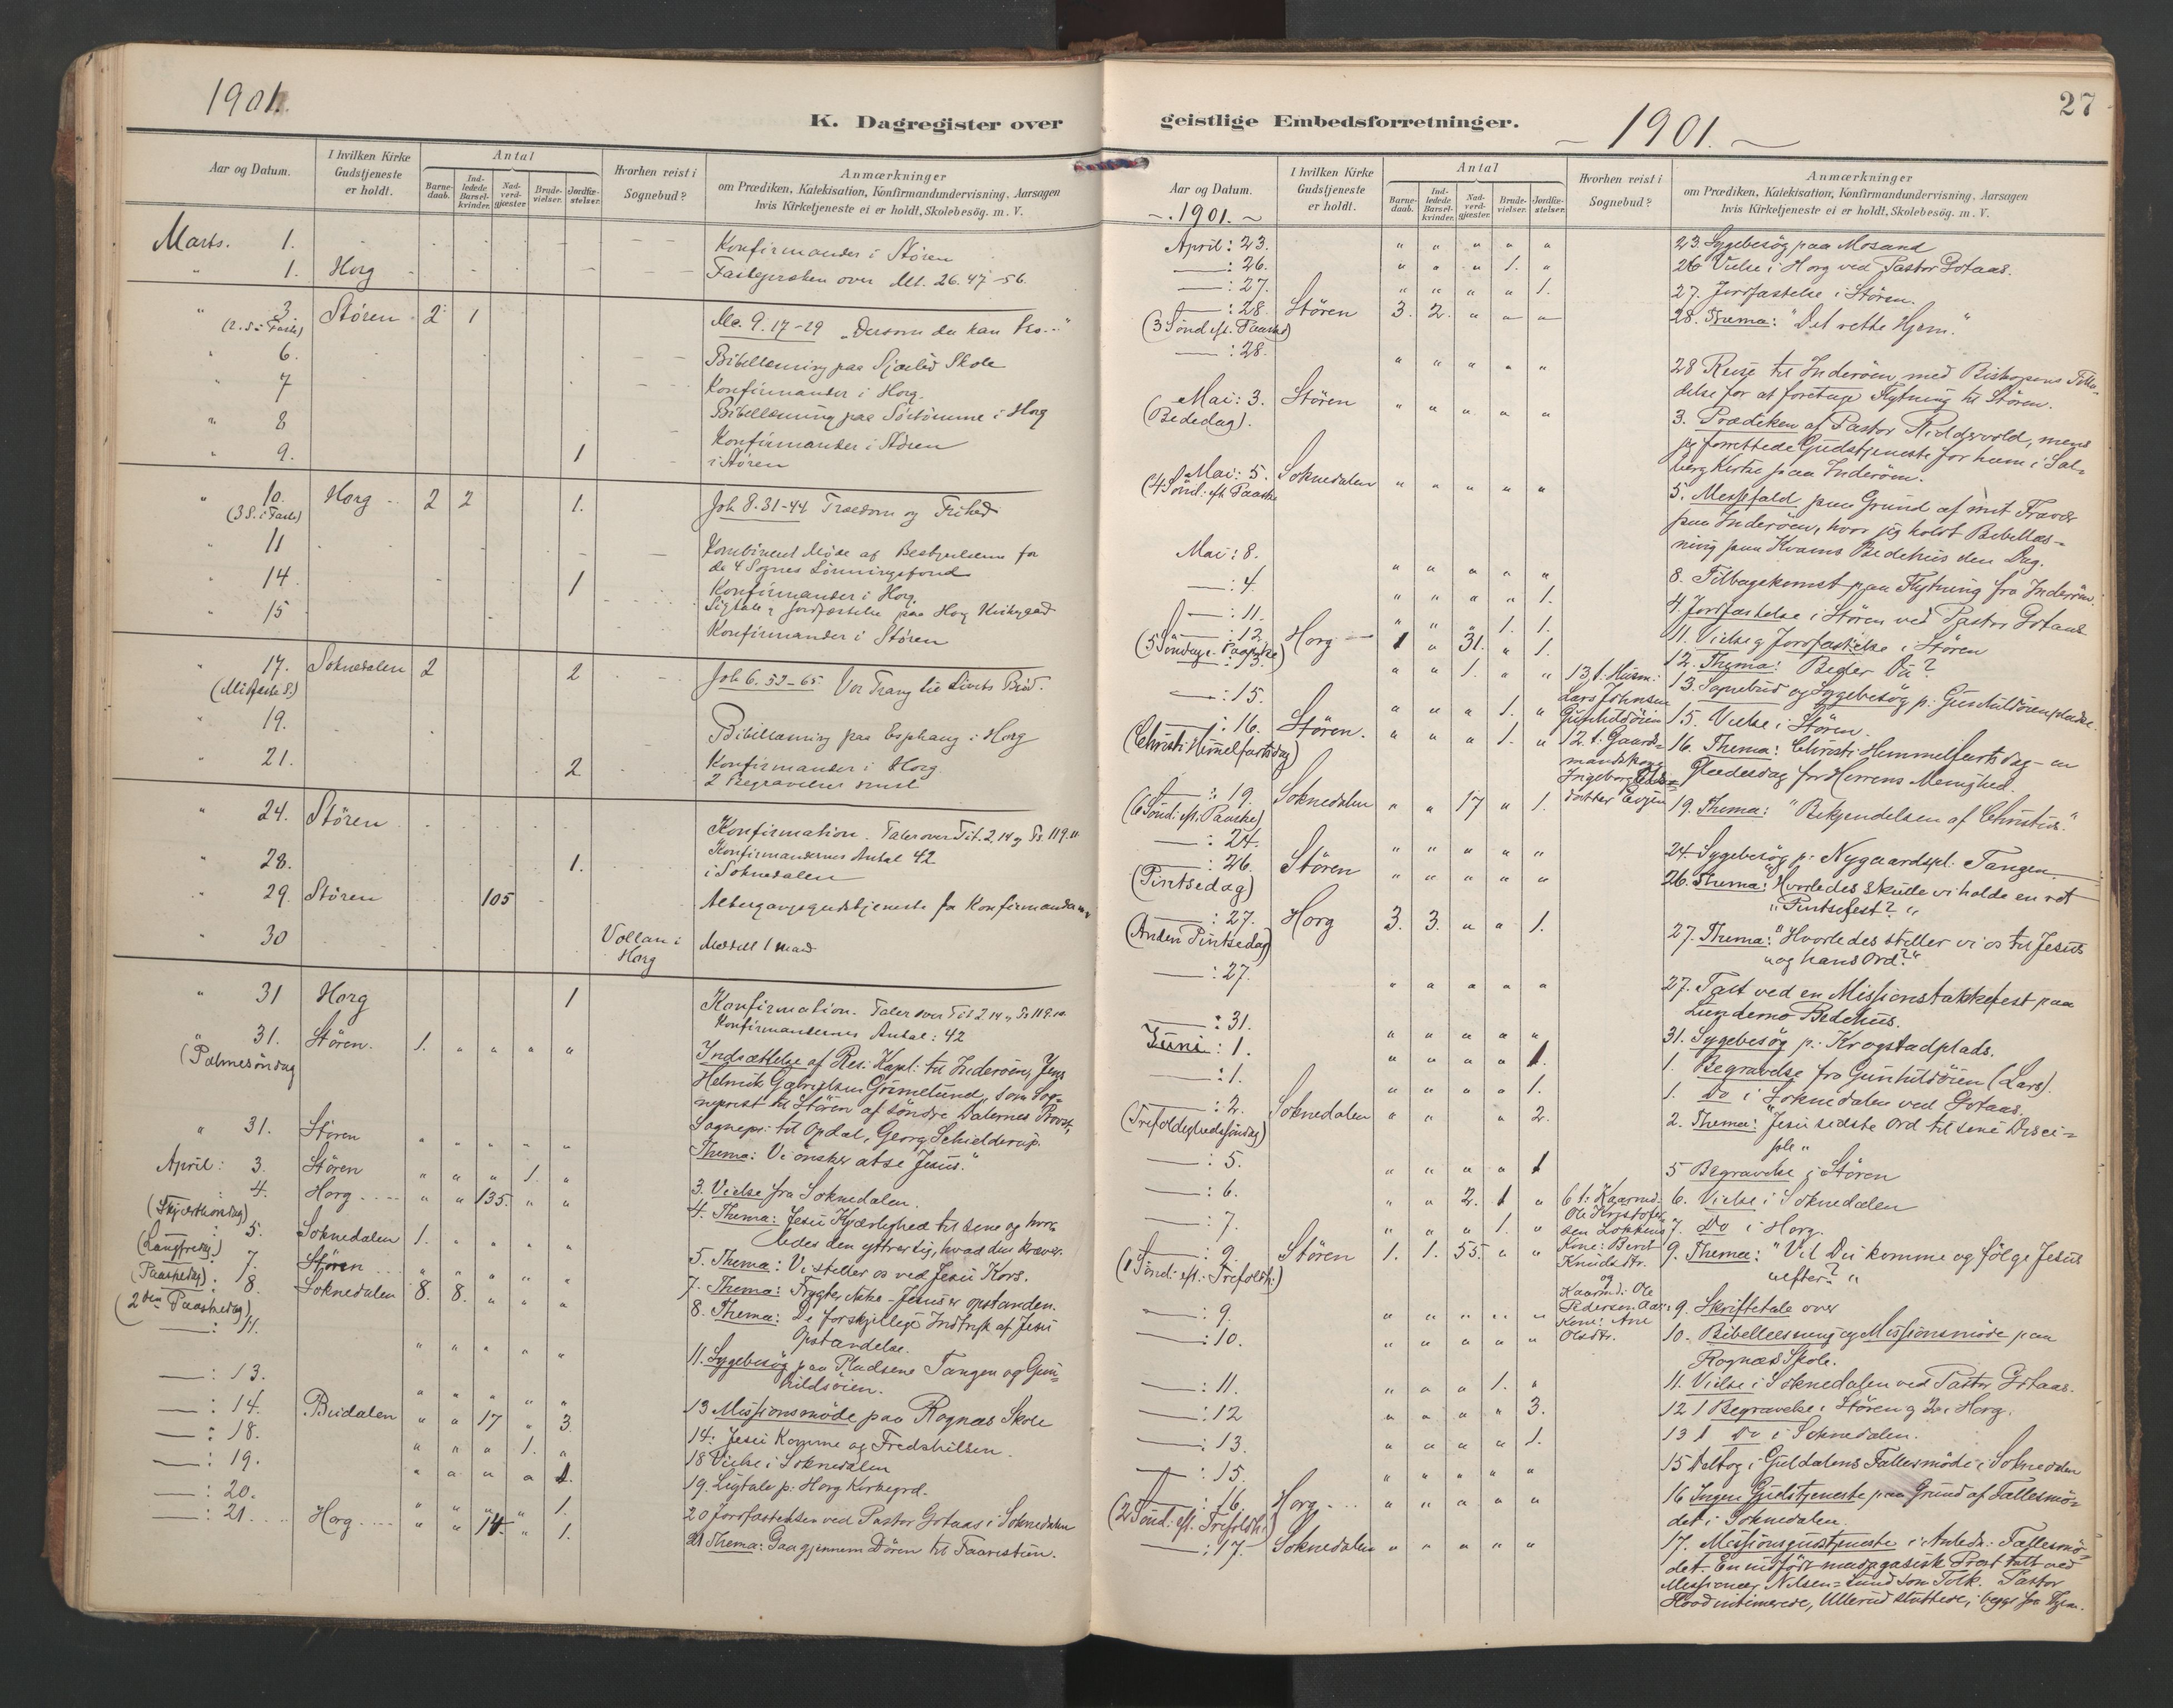 1901.
K. Dagregister over
Aar og Datum.
I hvilken Kirke Gudstjeneste er holdt.
Antal
Barnedaab.
Indledede Barselkvinder.
Nadverdgjæster.
Brudevielser.
Jordfæstelser.
Hvorhen reist i Sognebud?
Anmærkninger
om Prædiken, Katekisation, Konfirmandundervisning, Aarsagen
hvis Kirketjeneste ei er holdt, Skolebesög. m. V.
Marts. 1. Konfirmander i Stören
" 1. Horg Fastepræken over Mt. 26.47-56.
" 3. Stören 2 1 Mc. 9.17-29 „Dersom du kan tro..."
(2. S. i Faste)
" 6. Bibellæsning paa Skole
" 7 Konfirmander i Horg.
" 8 Bibellæsning paa i Horg
Konfirmander i Stören
" 9. 1 i Stören
" 10. Horg 2 2 1. Joh 8.31-44 Trældom og Frihed
(3 S. i Faste)
" 11 Kombineret Möde af Bestyrelserne for
de 4 Sognes Lönningsfond
" 14. 1 Konfirmander i Horg.
Ligtale & Jordfæstelse paa Horg Kirkegaard
" 15 Konfirmander i Stören
" 17. Soknedalen 2 2 Joh 6. 52-65 Vor Trang til Livets Bröd.
(Midfaste S.)
" 19. Bibellæsning paa Esphaug i Horg
" 21. 2 Konfirmander i Horg.
2 Begravelser smst
" 24. Stören Konfirmation. Taler over Tit. 2,14 og Ps. 119.11
Konfirmandernes Antal 42
" 28. 1. i Soknedalen
" 29. Stören 105 Altergangsgudstjeneste for Konfirmanderne
" 30 Vollan i
Horg
1 mand
" 31 Horg 1 Konfirmation. Taler over Tit 2.14 og Ps 119.10
Konfirmandernes Antal: 42
" 31. Stören. 1. " " " " Indsættelse af Res. Kapl: til Inderöen, Jens
(Palmesöndag
Helmik Gabrielsen Grimelund, som Sog-
neprest til Stören af söndre Dalernes Provst,
Sognepr: til Opdal, Georg Schielderup.
" 31. Stören " " " " " Thema: Vi önsker at se Jesus."
April: 3. Stören " " " 1. " 3. Vielse fra Soknedalen.
: 4. Horg " " 135. " " 4. Thema: Jesu Kjærlighed til sine og hvor-
(Skjærthorsdag)
ledes den yttrer sig, hvad den kræver.
: 5. Soknedalen 1. " " " " 5. Thema: Vi stiller os ved Jesu Kors.
(Langfredag)
: 7. Stören " " " " " 7. Thema: Frygter ikke - Jesus er opstanden.
(Paaskedag)
: 8. Soknedalen 8. 8. " " " 8. Thema: De forskjellige Indtryk af Jesu
(2den Paaskedag)
Opstandelse.
—: 11. " " " " " 11. Sygebesög paa Pladsene Tangen og Gun-
hildöien.
—: 13. " " " " " 13 Missionsmöde paa Rognæs Skole
—: 14. Budalen " " 17 " 3. 14: Jesu Komme og Fredshilsen.
—: 18. " " " 1. " 18 Vielse i Soknedalen
—: 19. " " " " 1. 19. Ligtale p: Horg Kirkegrd.
—: 20. " " " " 1. 20 Jordfæstelsen ved Pastor Gotaas i Soknedalen
—: 21. Horg " " 14. " 1. 21 Thema: Gaa gjennem Dören til Faarestien.
27
geistlige Embedsforretninger.
- 1901. -
Aar og Datum.
I hvilken Kirke Gudstjeneste er holdt.
Antal
Barnedaab.
Indledede Barselkvinder.
Nadverdgjæster.
Brudevielser.
Jordfæstelser.
Hvorhen reist i Sognebud?
Anmærkninger
om Prædiken, Katekisation, Konfirmandundervisning, Aarsagen
hvis Kirketjeneste ei er holdt, Skolebesög. m. V.
-. 1901. -
April: 23. " " " " " 23. Sygebesög paa Mosand
—: 26. " " " 1. " 26 Vielse i Horg ved Pastor Gotaas.
—: 27. " " " " 1. 27. Jordfæstelse i Stören.
—: 28. Stören 3. 2. " " " 28. Thema: "Det rette Hjem."
(3 Sönd. eft. Paaske)
—: 28. " " " " " 28 Reise til Inderöen med Biskopens Tilla-
delse for at foretage Flytning til Stören.
Mai: 3. Stören " " " " " 3. Prædiken af Pastor Riddervold, mens
(Bededag).
jeg forrettede Gudstjeneste for ham i Sal-
berg Kirke paa Inderöen.
Mai: 5. Soknedalen " " " " " 5. Messefald paa Grund af mit Fravær
(4 Sönd. eft Paaske
paa Inderöen, hvor jeg holdt Bibellæs-
ning paa Kvams Bedehus den Dag.
Mai: 8. " " " " " 8. Tilbagekomst paa Flytning fra Inderöen.
—: 4. " " " " 1. 4. Jordfæstelse i Stören ved Pastor Gotaas
—: 11. " " " 1. 1. 11. Vielse & Jordfæstelse i Stören
—: 12. Horg 1 " 31. " 1. 12. Thema: Beder Du?
(5 Söndag e. Paaske)
—: 13. " " 1. " " 13 t. Husm: Lars Johnsen Gunhildöien 13. Sognebud og Sygebesög p: Gunhildöienpladse.
—: 15. " " " 1. " 15. Vielse i Stören.
—: 16. Stören. " " " 1. " 12. t. Gaardmandskone Ingeborg datter Evjen 16. Thema: Christi Himmelfartsdag - en
(Christi Himmelfartsdag)
Glædesdag for Herrens Menighed.
—: 19. Soknedalen " " 17 " 1. 19. Thema: "Bekjendelsen af Christus."
(6 Sönd: eft: Paaske)
—: 24. " " " " " 24. Sygebesög p: Nygaardspl. Tangen
—: 26. Stören " " " " " 26. Thema: "Hvorledes skulle vi holde en ret
(Pintsedag)
"Pintsefest?"
—: 27. Horg 3. 3. " " 1. 27. Thema: "Hvorledes stiller vi os til Jesus
(Anden Pintsedag)
"og hans Ord?"
—: 27. " " " " " 27. Talt ved en Missionstakkefest paa
Lundemo Bedehus.
—: 31. " " " " " 31. Sygebesög p: Krogstadplads.
Juni: 1. " " " " 1. 1. Begravelse fra Gunhildöien (Lars).
—: 1. " " " " 1. 1. Do i Soknedalen ved Gotaas.
—: 2. Soknedalen " " " 2. 2. Thema: "Jesu sidste Ord til sine Disci-
(Trefoldighedssöndag)
ple"
—: 5. " " " " 1 5 Begravelse i Stören
—: 6. " " 2. 1 " 6. Vielse i Soknedalen
—: 7. " " " 1. " 7. Do i Horg.
6 t: Kaarmd: Ole Kristofersen Løkkens Kone: Berit Knudsdtr. og Kaarmd: Ole Pedersen Kone: Ane Olsdtr.
—: 9. Stören 1. 1. 55. " " 9. Thema: "Vil Du komme og fölge Jesus
(1 Sönd: eft: Trefoldh:)
efter?"
—: 9. " " " " " 9. Skriftetale over
—: 10. " " " " " 10. Bibellæsning og Missionsmöde paa
Rognæs Skole.
—: 11. " " " 1. " 11. Vielse i Soknedalen ved Pastor Gotaas.
—: 12 " " " " 3. 12 1 Begravelse i Stören & 2 i Horg.
—: 13. " " " " 1. 13 1 Do i Soknedalen.
—: 15. " " " " " 15 Deltog i Guldalens Fællesmöde i Soknedalen
—: 16. Horg " " " " " 16 Ingen Gudstjeneste paa Grund af Fællesmö-
(2 Sönd: eft. Trefoldh:)
det i Soknedalen.
—: 17. Soknedalen " " " " " 17. Missionsgudstjeneste i Anledn. Fællesmö-
det. En indfödt madagasisk Prest talt ved
Missionær Nilsen-Lund som Tolk. Pastor
intimerede, Ullerud sluttede, begge fra